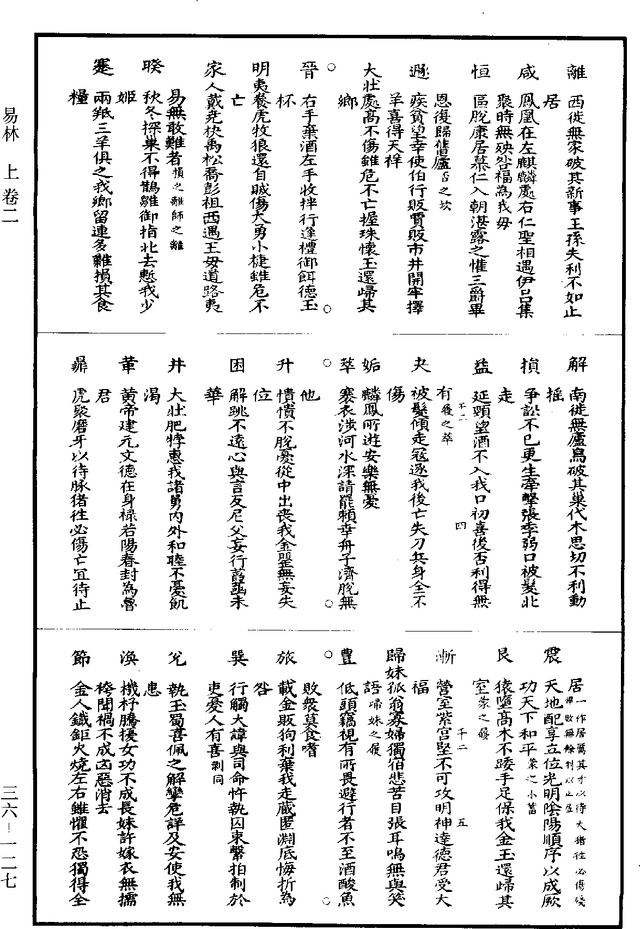 易林　上　卷二
離　西徙無家破其新事王孫失利不如止
居
咸　鳳凰在左麒麟處右仁聖相遇伊呂集
聚時無殃咎福為我母
恒　區脫康居慕仁入朝湛露之惟三爵畢
恩復歸舊廬
遯　疾貧望幸使伯行販賈販市井開牢擇
羊喜得天牂
大壯處高不傷雖危不亡握珠懷玉還歸其
鄉
○
晉　右手棄酒左手收拌行逢禮御餌德玉
杯
明夷養虎牧狼還自賊傷大勇小捷雖危不
亡
家人戴堯扶禹松喬彭祖西遇王母道路夷
易無敢難者
睽　秋冬探巢不得鵲雛御指北去慙我少
姬
蹇　兩羝三羊俱之我鄉留連多難損其食
糧
解　南徙無廬鳥破其巢伐木思切不利動
搖
損　爭訟不已更生牽擊張季弱口被髮北
走
益　延頸望酒不入我口初喜後否利得無
有
夬　被髮傾走寇逐我後亡失刀兵身全不
傷
姤　麟鳳所遊安樂無憂
萃　褰衣涉河水深請罷賴幸舟子濟脫無
他
○
升　憒憒不脫憂從中出喪我金罌無妄失
位
困　解跳不遠心與言反尼父妄行葭菡未
華
井　大壯肥牸惠我諸舅內外和睦不憂飢
渴
革　黃帝建元文德在身祿若陽春封為魯
君
鼎　虎聚磨牙以待豚猪往必傷亡宜待止
居
震　天地配享立位光明陰陽順序以成厥
功天下和平
艮　猿墮高木不踒手足保我金玉還歸其
室
漸　營室紫宮堅不可攻明神達德君受大
福
歸妹孤翁寡婦獨宿悲苦目張耳鳴無與笑
語
豐　低頭竊視有所畏避行者不至酒酸魚
敗眾莫貪嗜
○
旅　載金販狗利棄我走藏匿淵底悔折為
咎
巽　行觸大諱與司命忤執囚束繫拘制於
吏憂人有喜
兌　執玉蜀喜佩之解攣危詳及安使我無
患
渙　機杼騰擾女功不成長妹許嫁衣無襦
袴聞禍不成凶惡消去
節　金人鐵鉅火燒左右雖懼不恐獨得全
三六-一二七